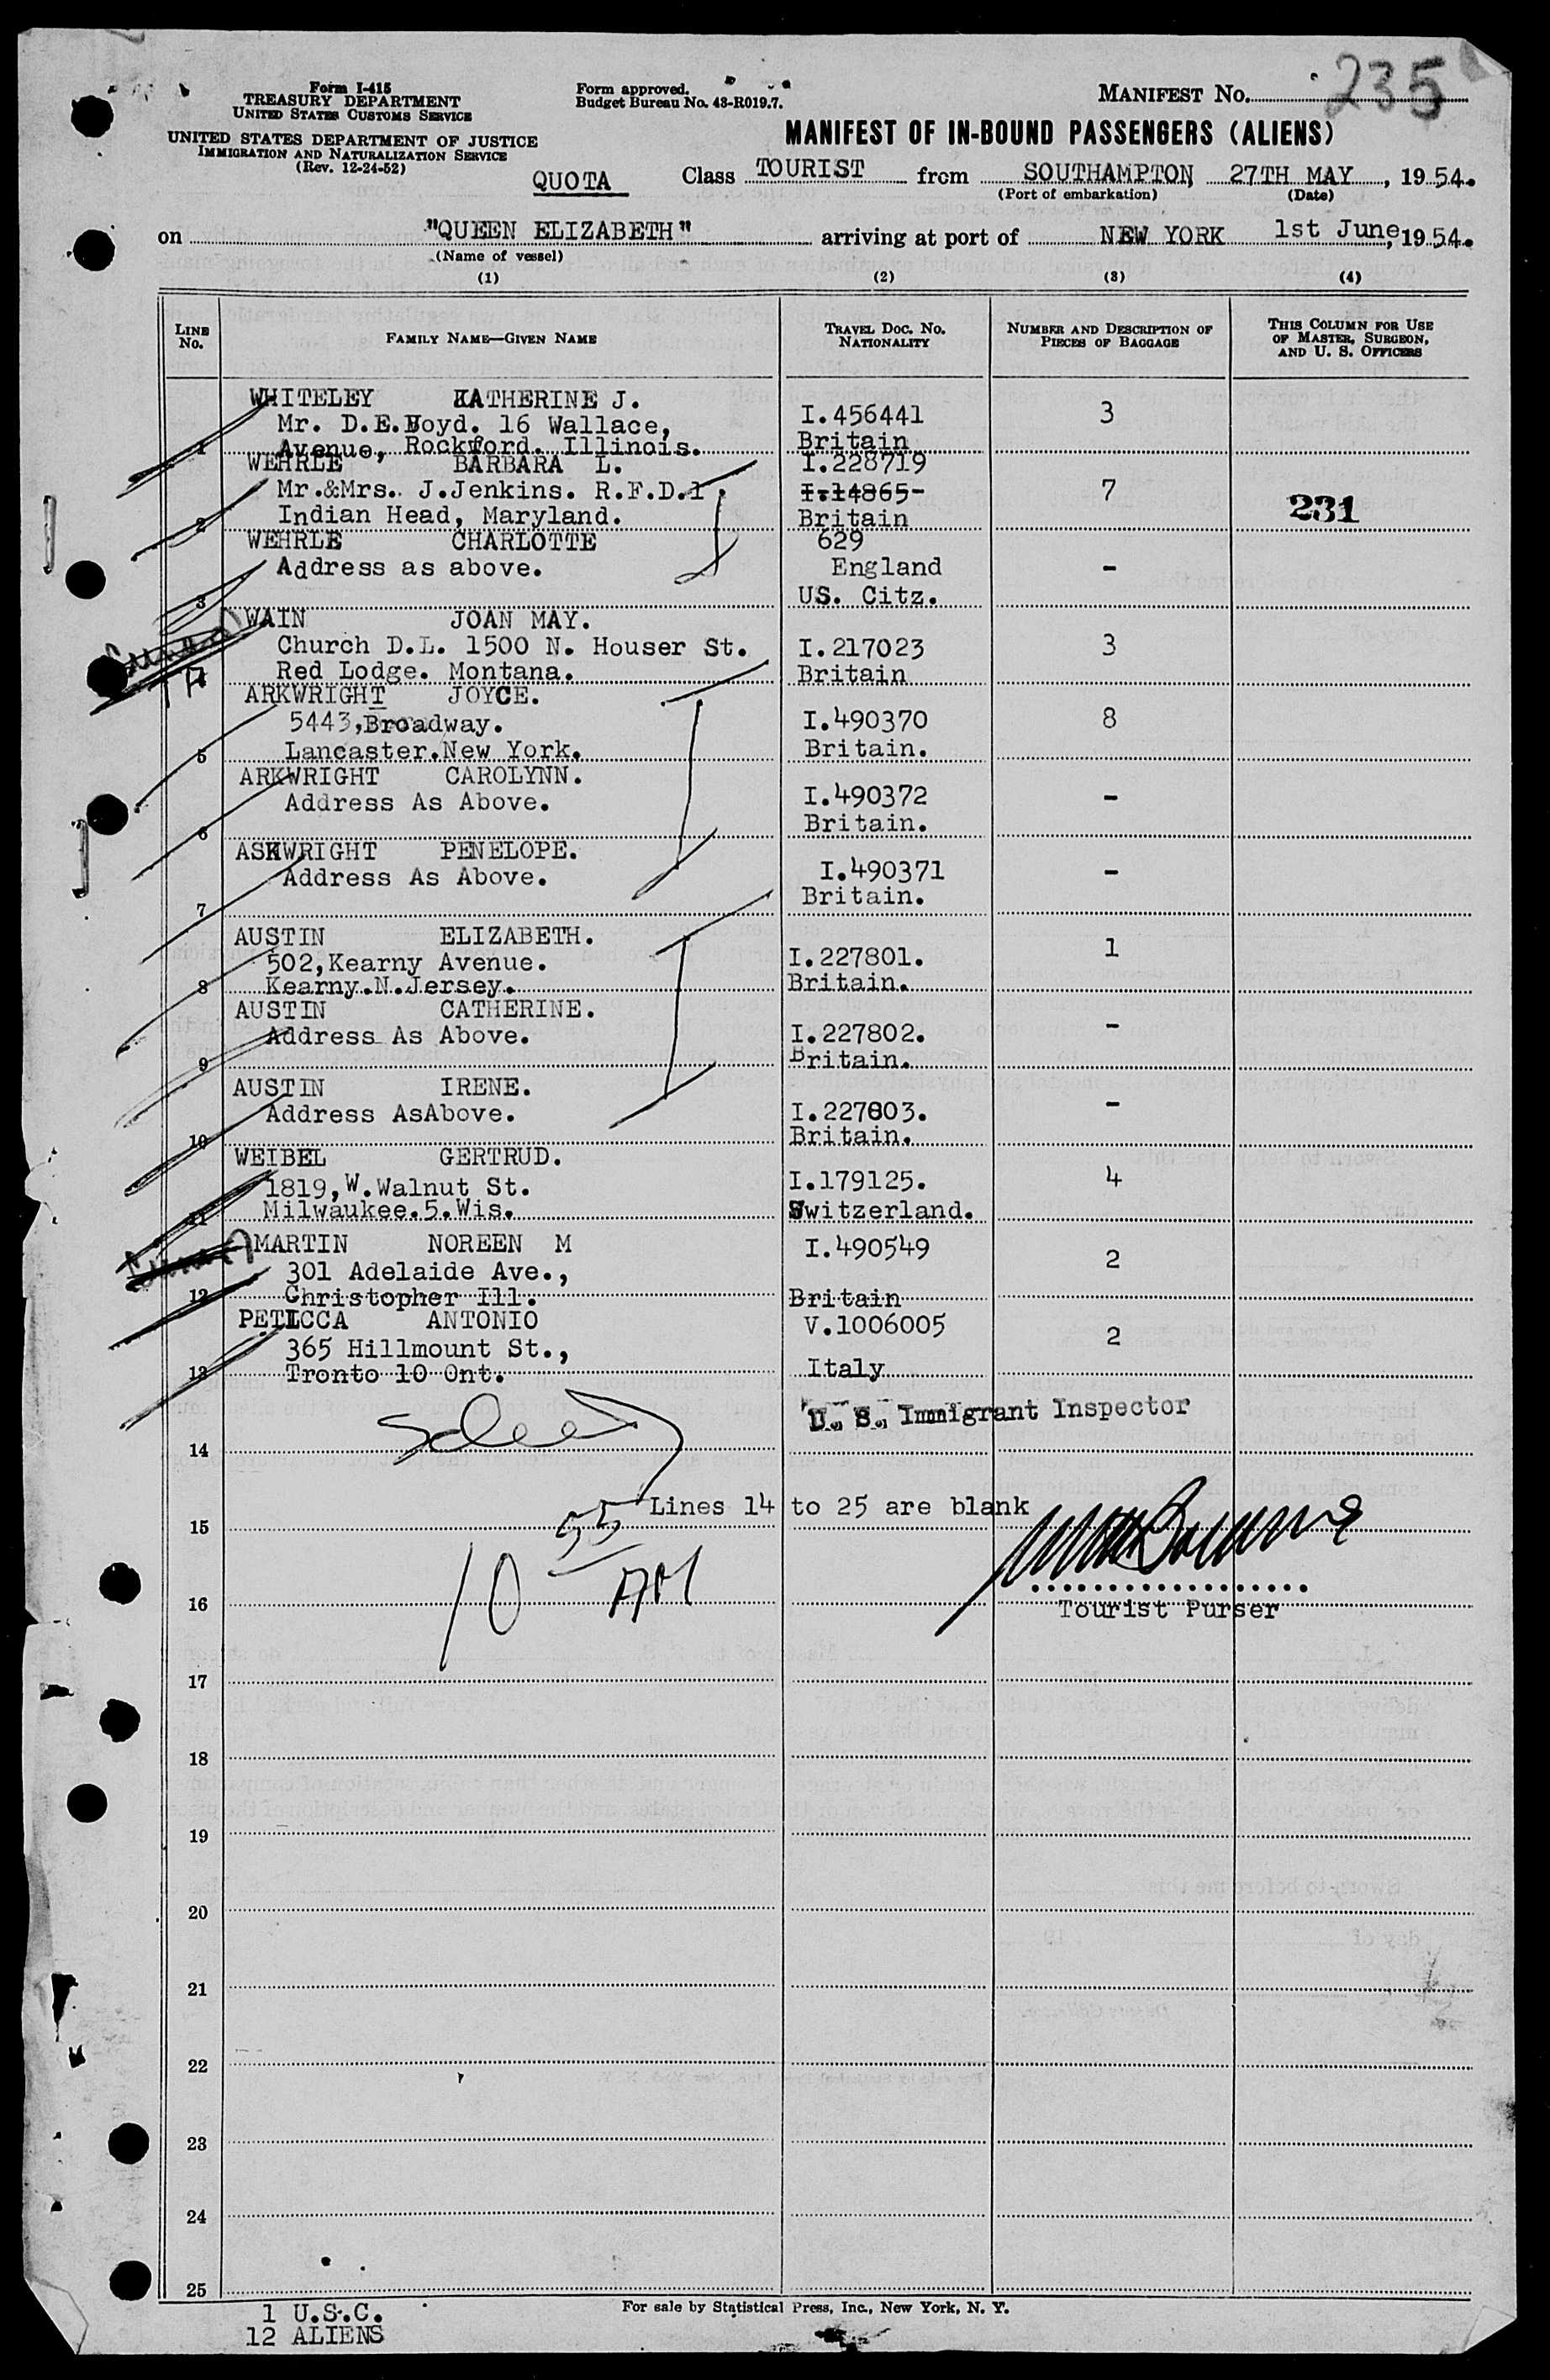 Form I-415
TREASURY DEPARTMENT
UNITED STATES CUSTOMS SERVICE
UNITED STATES DEPARTMENT OF JUSTICE
IMMIGRATION AND NATURALIZATION SERVICE
(Rev. 12-24-52)
Form approved.
Budget Bureau No. 43-R019.7.
MANIFEST No. 235
MANIFEST OF IN-BOUND PASSENGERS (ALIENS)
QUOTA Class TOURIST from SOUTHAMPTON, 27TH MAY, 1954.
(Port of embarkation) (Date)
on "QUEEN ELIZABETH" arriving at port of NEW YORK 1st June, 1954.
(Name of vessel)
(1) (2) (3) (4)
LINE No. FAMILY NAME—GIVEN NAME TRAVEL DOC. No. NATIONALITY NUMBER AND DESCRIPTION OF PIECES OF BAGGAGE THIS COLUMN FOR USE OF MASTER, SURGEON, AND U. S. OFFICERS
WHITELEY KATHERINE J.
Mr. D.E.Boyd. 16 Wallace, I.456441 3
1 Avenue, Rockford. Illinois. Britain
WEHRLE BARBARA L. I.228719
Mr.&Mrs. J.Jenkins. R.F.D.1, I.14865- 7
2 Indian Head, Maryland. Britain 231
WEHRLE CHARLOTTE 629
Address as above. England -
3 US. Citz.
WAIN JOAN MAY.
Church D.L. 1500 N. Houser St. I.217023 3
4 Red Lodge. Montana. Britain
ARKWRIGHT JOYCE.
5443, Broadway. I.490370 8
5 Lancaster.New York. Britain.
ARKWRIGHT CAROLYNN.
Address As Above. I.490372 -
6 Britain.
ASKWRIGHT PENELOPE.
Address As Above. I.490371 -
7 Britain.
AUSTIN ELIZABETH. 1
502,Kearny Avenue. I.227801.
8 Kearny.N.Jersey. Britain.
AUSTIN CATHERINE.
Address As Above. I.227802. -
9 Britain.
AUSTIN IRENE.
Address AsAbove. I.227803. -
10 Britain.
WEIBEL GERTRUD.
1819,W.Walnut St. I.179125. 4
11 Milwaukee.5.Wis. Switzerland.
MARTIN NOREEN M I.490549
301 Adelaide Ave., 2
12 Christopher Ill. Britain
PETICCA ANTONIO V.1006005
365 Hillmount St., 2
13 Tronto 10 Ont. Italy
U. S. Immigrant Inspector
14
Lines 14 to 25 are blank
15
10 55 AM
16
Tourist Purser
17
18
19
20
21
22
23
24
25
1 U.S.C.
12 ALIENS
For sale by Statistical Press, Inc., New York, N. Y.